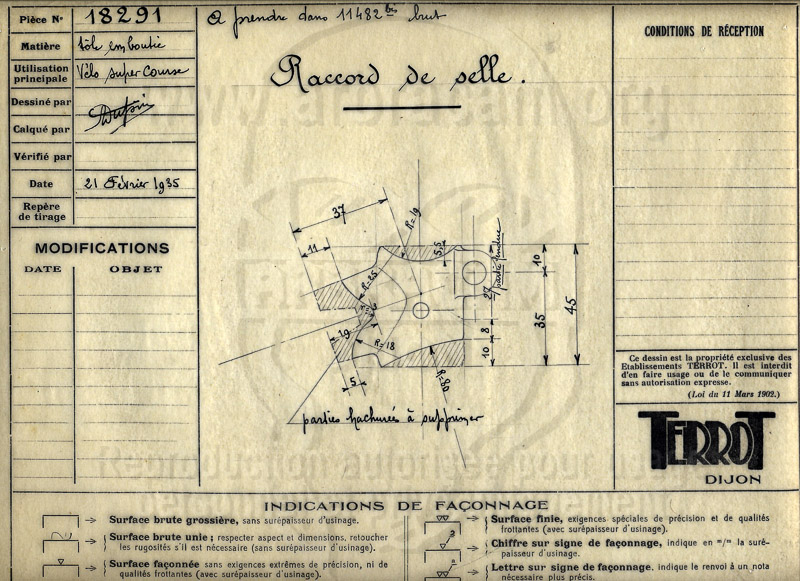 Pièce N° 18291
A prendre dans 11482 bis brut
CONDITIONS DE RÉCEPTION
Matière tôle emboutie
Utilisation principale Vélo super Course
Raccord de selle.
Dessiné par
Calqué par
Vérifié par
Date 21 Février 1935
Repère de tirage
MODIFICATIONS
DATE OBJET
37
R=19
11
5,5
partie fendue
10
27
R=25
45
35
19
8
R=18
10
5
R=80
parties hachurées à supprimer
Ce dessin est la propriété exclusive des
Etablissements TERROT. Il est interdit
d'en faire usage ou de le communiquer
sans autorisation expresse.
(Loi du 11 Mars 1902.)
TERROT
DIJON
INDICATIONS DE FAÇONNAGE
Surface brute grossière, sans surépaisseur d'usinage.
Surface brute unie; respecter aspect et dimensions, retoucher
les rugosités s'il est nécessaire (sans surépaisseur d'usinage).
Surface façonnée sans exigences extrêmes de précision, ni de
qualités frottantes (avec surépaisseur d'usinage).
Surface finie, exigences spéciales de précision et de qualités
frottantes (avec surépaisseur d'usinage).
Chiffre sur signe de façonnage, indique en m/m la suré-
paisseur d'usinage.
Lettre sur signe de façonnage. indique le renvoi à un nota
nécessaire plus précis.